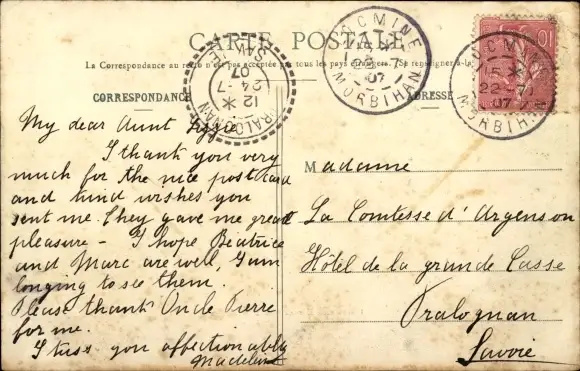 CARTE POSTALE
La Correspondance au recto n'est pas acceptée par tous les pays étrangers. (Se renseigner à la
CORRESPONDANCE
ADRESSE
LOCMINE
22 -7
07
MORBIHAN
LOCMINE
15 *
22 -7
07
MORBIHAN
PRALOGNAN
12 *
24 -7
07
SAVOIE
10
My dear Aunt
I thank you very
much for the nice postcard
and kind wishes you
sent me. They gave me great
pleasure - I hope Beatrice
and Marc are well, I am
longing to see them.
Please thank Oncle Pierre
for me.
I kiss you affectionably
Madeleine
Madame
La Comtesse d'Argenson
Hôtel de la grande Casse
Pralognan
Savoie